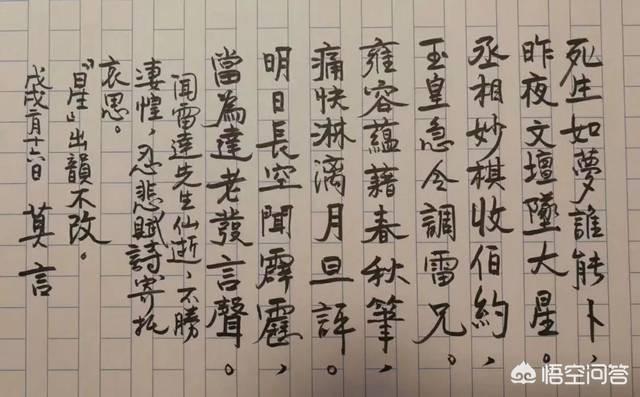 死生如夢誰能卜，
昨夜文壇墜大星。
丞相妙棋收伯約，
玉皇急令調雷兄。
雍容蘊藉春秋筆，
痛快淋漓月旦評。
明日長空聞霹靂，
當為達老發言聲。
聞雷達先生仙逝，不勝
淒惶，忍悲賦詩寄托
哀思。
“星”出韻不改。
戊戌二月十六日 莫言
悟空问答